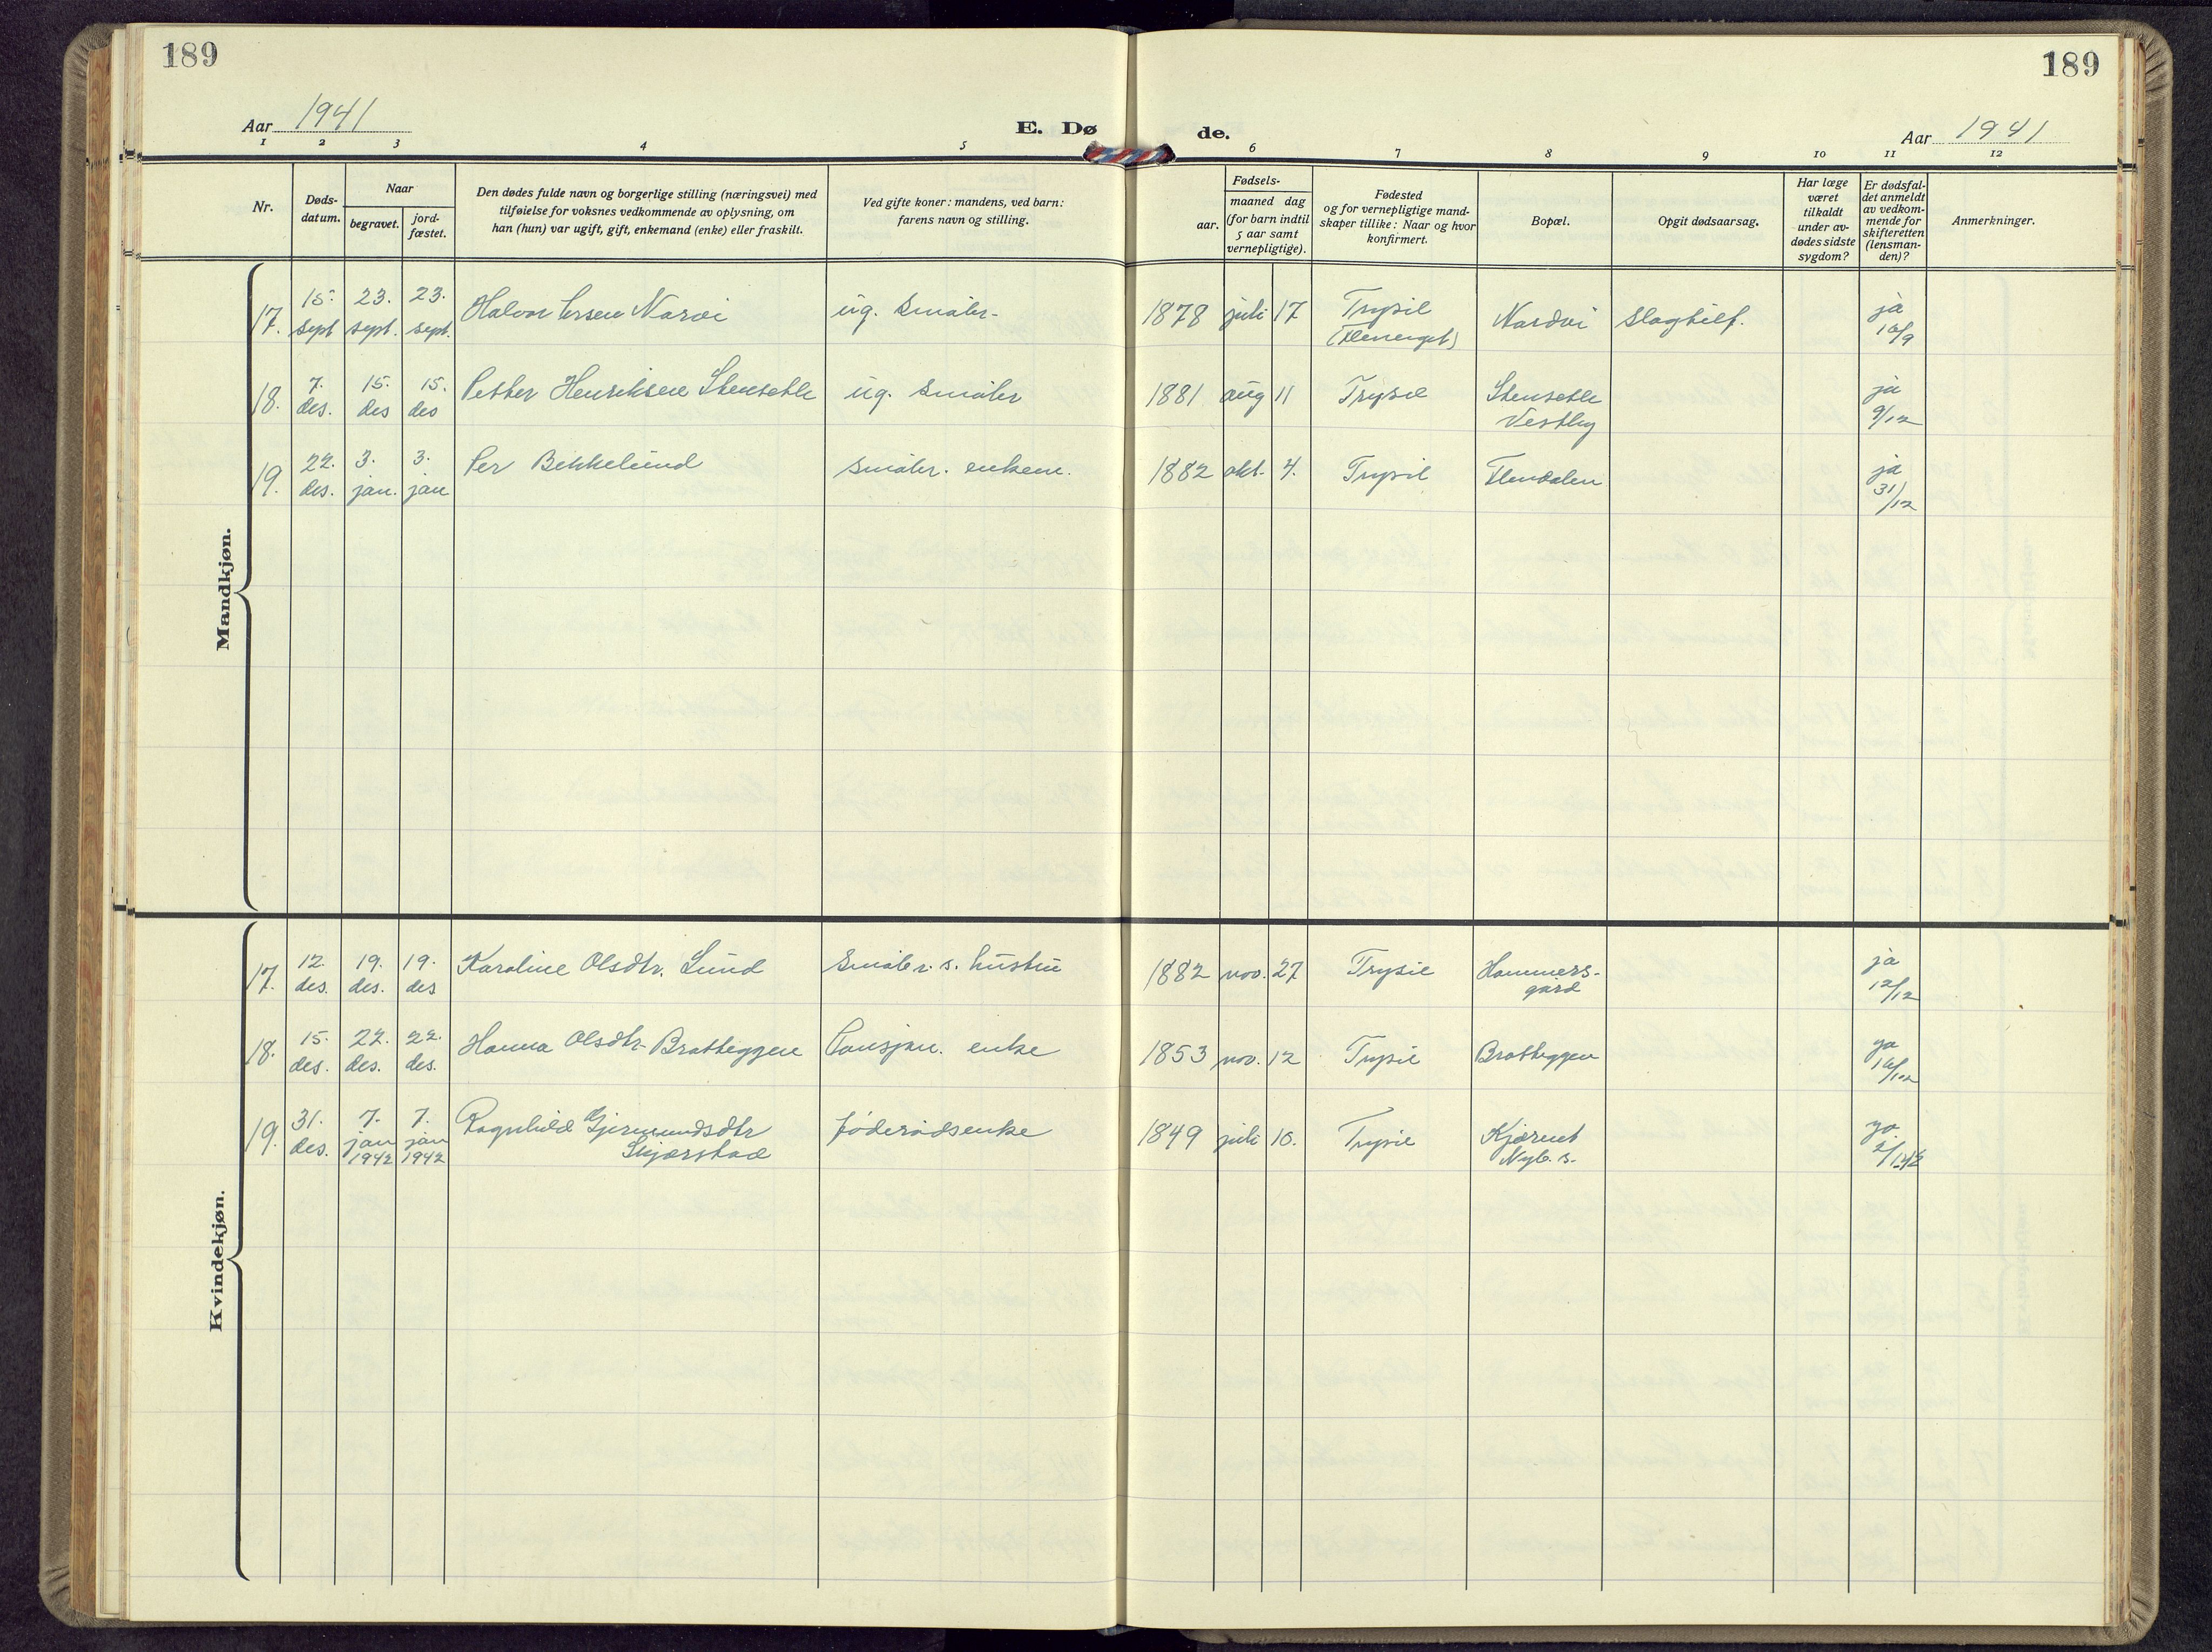 189
189
Aar 1941
E. Dø
de.
Aar 1941
1 2 3 4 5 6 7 8 9 10 11 12
Nr.
Døds-
datum.
Naar
begravet.
jord-
fæstet.
Den dødes fulde navn og borgerlige stilling (næringsvei) med
tilføielse for voksnes vedkommende av oplysning, om
han (hun) var ugift, gift, enkemand (enke) eller fraskilt.
Ved gifte koner: mandens, ved barn:
farens navn og stilling.
Fødsels-
aar.
maaned dag
(for barn indtil
5 aar samt
vernepligtige).
Fødested
og for vernepligtige mand-
skaper tillike: Naar og hvor
konfirmert.
Bopæl.
Opgit dødsaarsag.
Har læge
været
tilkaldt
under av-
dødes sidste
sygdom?
Er dødsfal-
det anmeldt
av vedkom-
mende for
skifteretten
(lensman-
den)?
Anmerkninger.
Mandkjøn.
17. 15. sept 23. sept. 23. sept. Halvor Narvi ug. småbr. 1878 juli 17 Trysil Nardvi Slagtilf. ja 16/9
18. 7. des. 15. des 15. des Petter Henriksen Stensetle ug. småbr 1881 aug 11 Trysil Stensetle Vestby ja 9/12
19. 22. des. 3. jan. 3. jan Per Bekkelund småbr. enkem. 1882 okt. 4. Trysil Flendalen ja 31/12
Kvindekjøn.
17. 12. des. 19. des. 19. des Karoline Olsdtr. Lund Småbr. s. hustru 1882 nov. 27 Trysil Hammers-
gård ja 12/12
18. 15. des. 22. des. 22. des. Hanna Olsdtr. Bratteggen Pensjon. enke 1853 nov. 12 Trysil Bratteggen ja 16/12
19. 31. des. 7. jan 1942 7. jan 1942 Ragnhild Gjermundsdtr
Skjærstad føderådsenke 1849 juli 10. Trysil Kjærnet
Nyb. s. ja